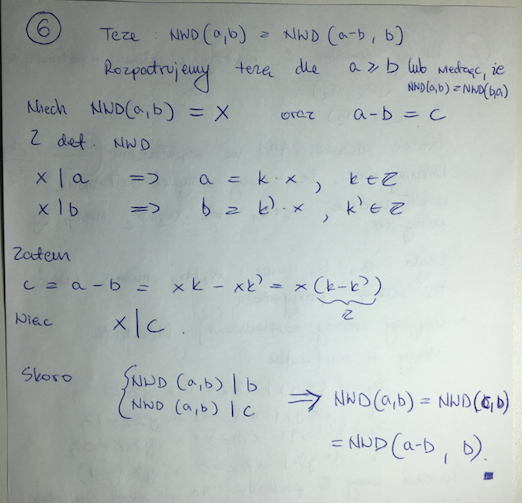 6
Teza : NWD(a,b) = NWD(a-b, b)
Rozpatrujemy tezę dla a ⩾ b lub wiedząc, że
NWD(a,b) = NWD(b,a)
Niech NWD(a,b) = X oraz a-b = c
Z def. NWD
x | a => a = k · x , k ∈ Z
x | b => b = k' · x , k' ∈ Z
Zatem
c = a - b = xk - xk' = x (k-k')
Z
Więc x | c .
Skoro { NWD (a,b) | b
NWD (a,b) | c => NWD(a,b) = NWD(c,b)
= NWD(a-b, b).